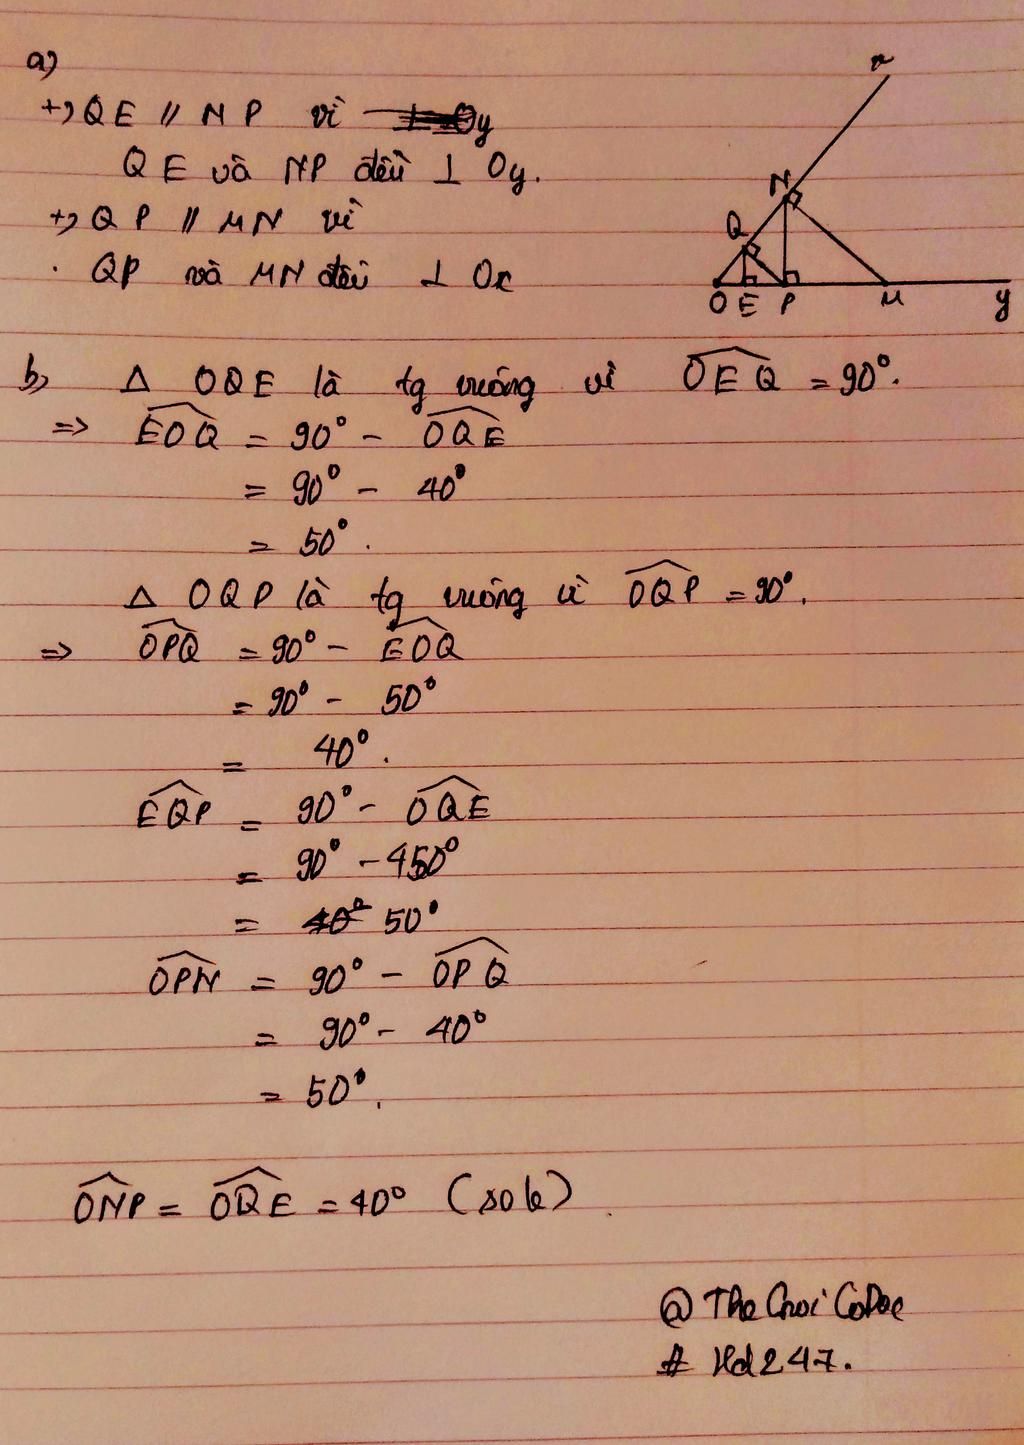 a)
+) QE // NP vì Oy
QE và NP đều ⊥ Oy.
+) QP // MN vì
QP và MN đều ⊥ Ox
x
N
Q
O E P M y
b) Δ OQE là tg vuông vì OEQ = 90°.
=> EOQ = 90° - OQE
= 90° - 40°
= 50°.
Δ OQP là tg vuông vì OQP = 90°.
=> OPQ = 90° - EOQ
= 90° - 50°
= 40°.
EQP = 90° - OQE
= 90° - 450°
= 40° 50°
OPN = 90° - OPQ
= 90° - 40°
= 50°.
ONP = OQE = 40° (sole)
@
# Hd247.